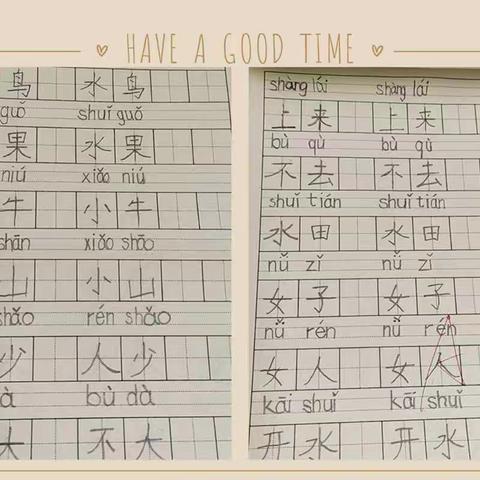 HAVE A GOOD TIME
鸟 水鸟
guǒ shuǐ guǒ
果 水果
niú xiǎo niú
牛 小牛
shān xiǎo shāo
山 小山
shǎo rén shǎo
少 人少
à bù dà
大 不大
shàng lái shàng lái
上来 上来
bù qù bù qù
不去 不去
shuǐ tián shuǐ tián
水田 水田
nǚ zǐ nǚ zǐ
女子 女子
nǚ rén nǚ rén
女人 女人
kāi shuǐ kāi shuǐ
开水 开水